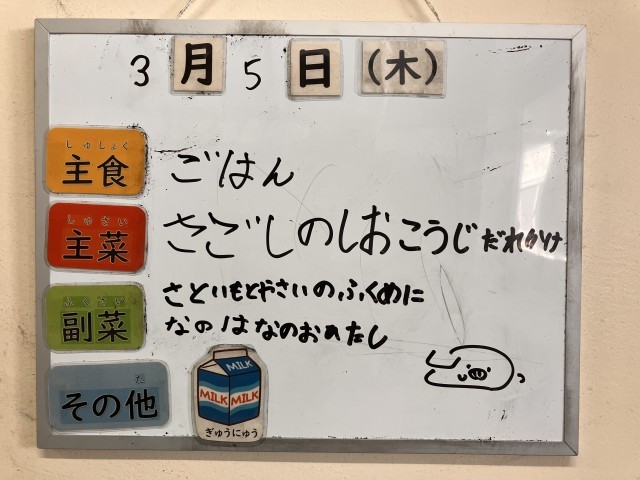 3月5日(木)
しゅしょく
主食 ごはん
しゅさい
主菜 さごしのしおこうじだれかけ
ふくさい
副菜 さといもとやさいのふくめに
なのはなのおめたし
た
その他
MILK
MILK MILK
ぎゅうにゅう